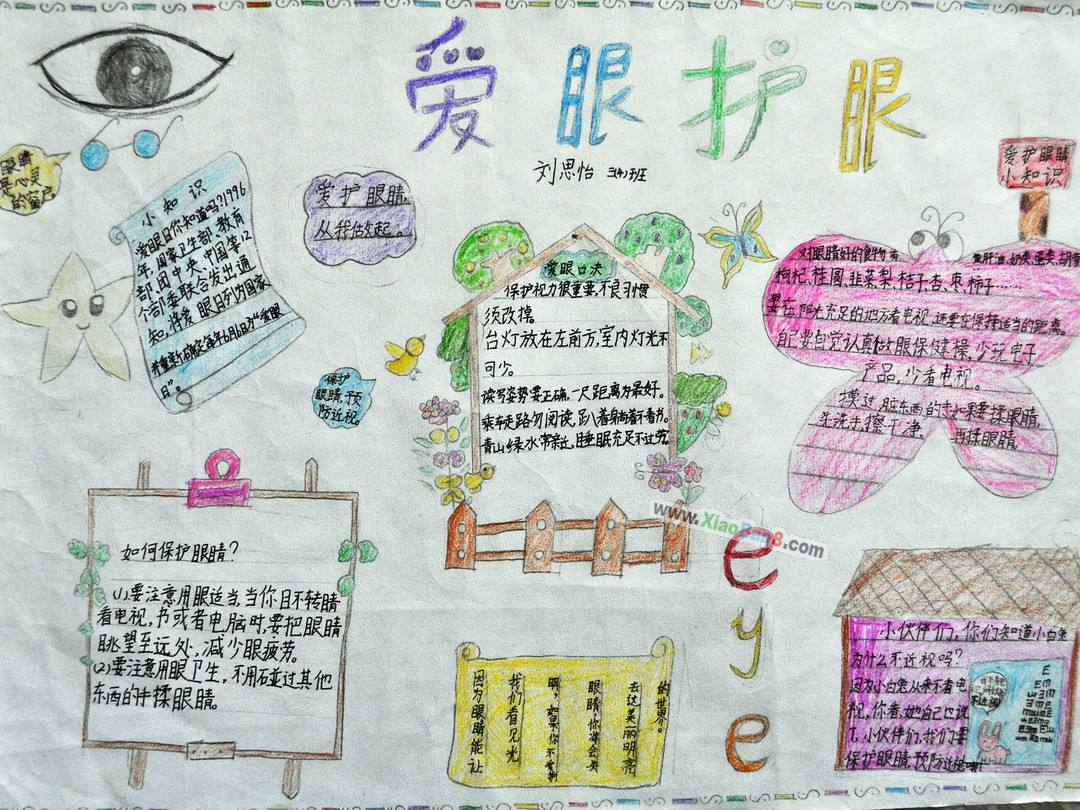 爱眼护眼
刘思怡 三(4)班
眼睛
是心灵
的窗户
小知识
爱眼日你知道吗?1996
年,国家卫生部、教育
部、团中央、中国等12
个部委联合发出通
知,将爱眼日列为国家
并重新确定每年6月6日为“爱眼
日”。
爱护眼睛,
从我做起。
保护
眼睛,预
防近视。
爱眼口决
保护视力很重要,不良习惯
须改掉。
台灯放在左前方,室内灯光不
可少。
读写姿势要正确,一尺距离为最好。
乘车走路勿阅读,趴着躺着不看书。
青山绿水常亲近,睡眠充足不过劳。
爱护眼睛
小知识
对眼睛好的食物有 鱼肝油、奶类、蛋类、胡萝
枸杞、桂圆、韭菜、梨、桔子、杏、枣、柿子……
要在阳光充足的地方看电视,还要在保持适当的距离。
自己要自觉认真做眼保健操,少玩电子
产品,少看电视。
摸过脏东西的手如果要揉眼睛,
先洗手擦干净,再揉眼睛
www.XiaoBan8.com
如何保护眼睛?
(1)要注意用眼适当,当你目不转睛
看电视,书或者电脑时,要把眼睛
眺望至远处,减少眼疲劳。
(2)要注意用眼卫生,不用碰过其他
东西的手揉眼睛。
因为眼睛能让
我们看见光
明,如果你不爱护
眼睛你将会失
去这美丽明亮
的世界。
eye
小伙伴们,你们知道小白兔
为什么不近视吗?
因为小白兔从来不看电
视,你看,她自己也说
了,小伙伴们,我们要
保护眼睛,预防近视哦!
不近视